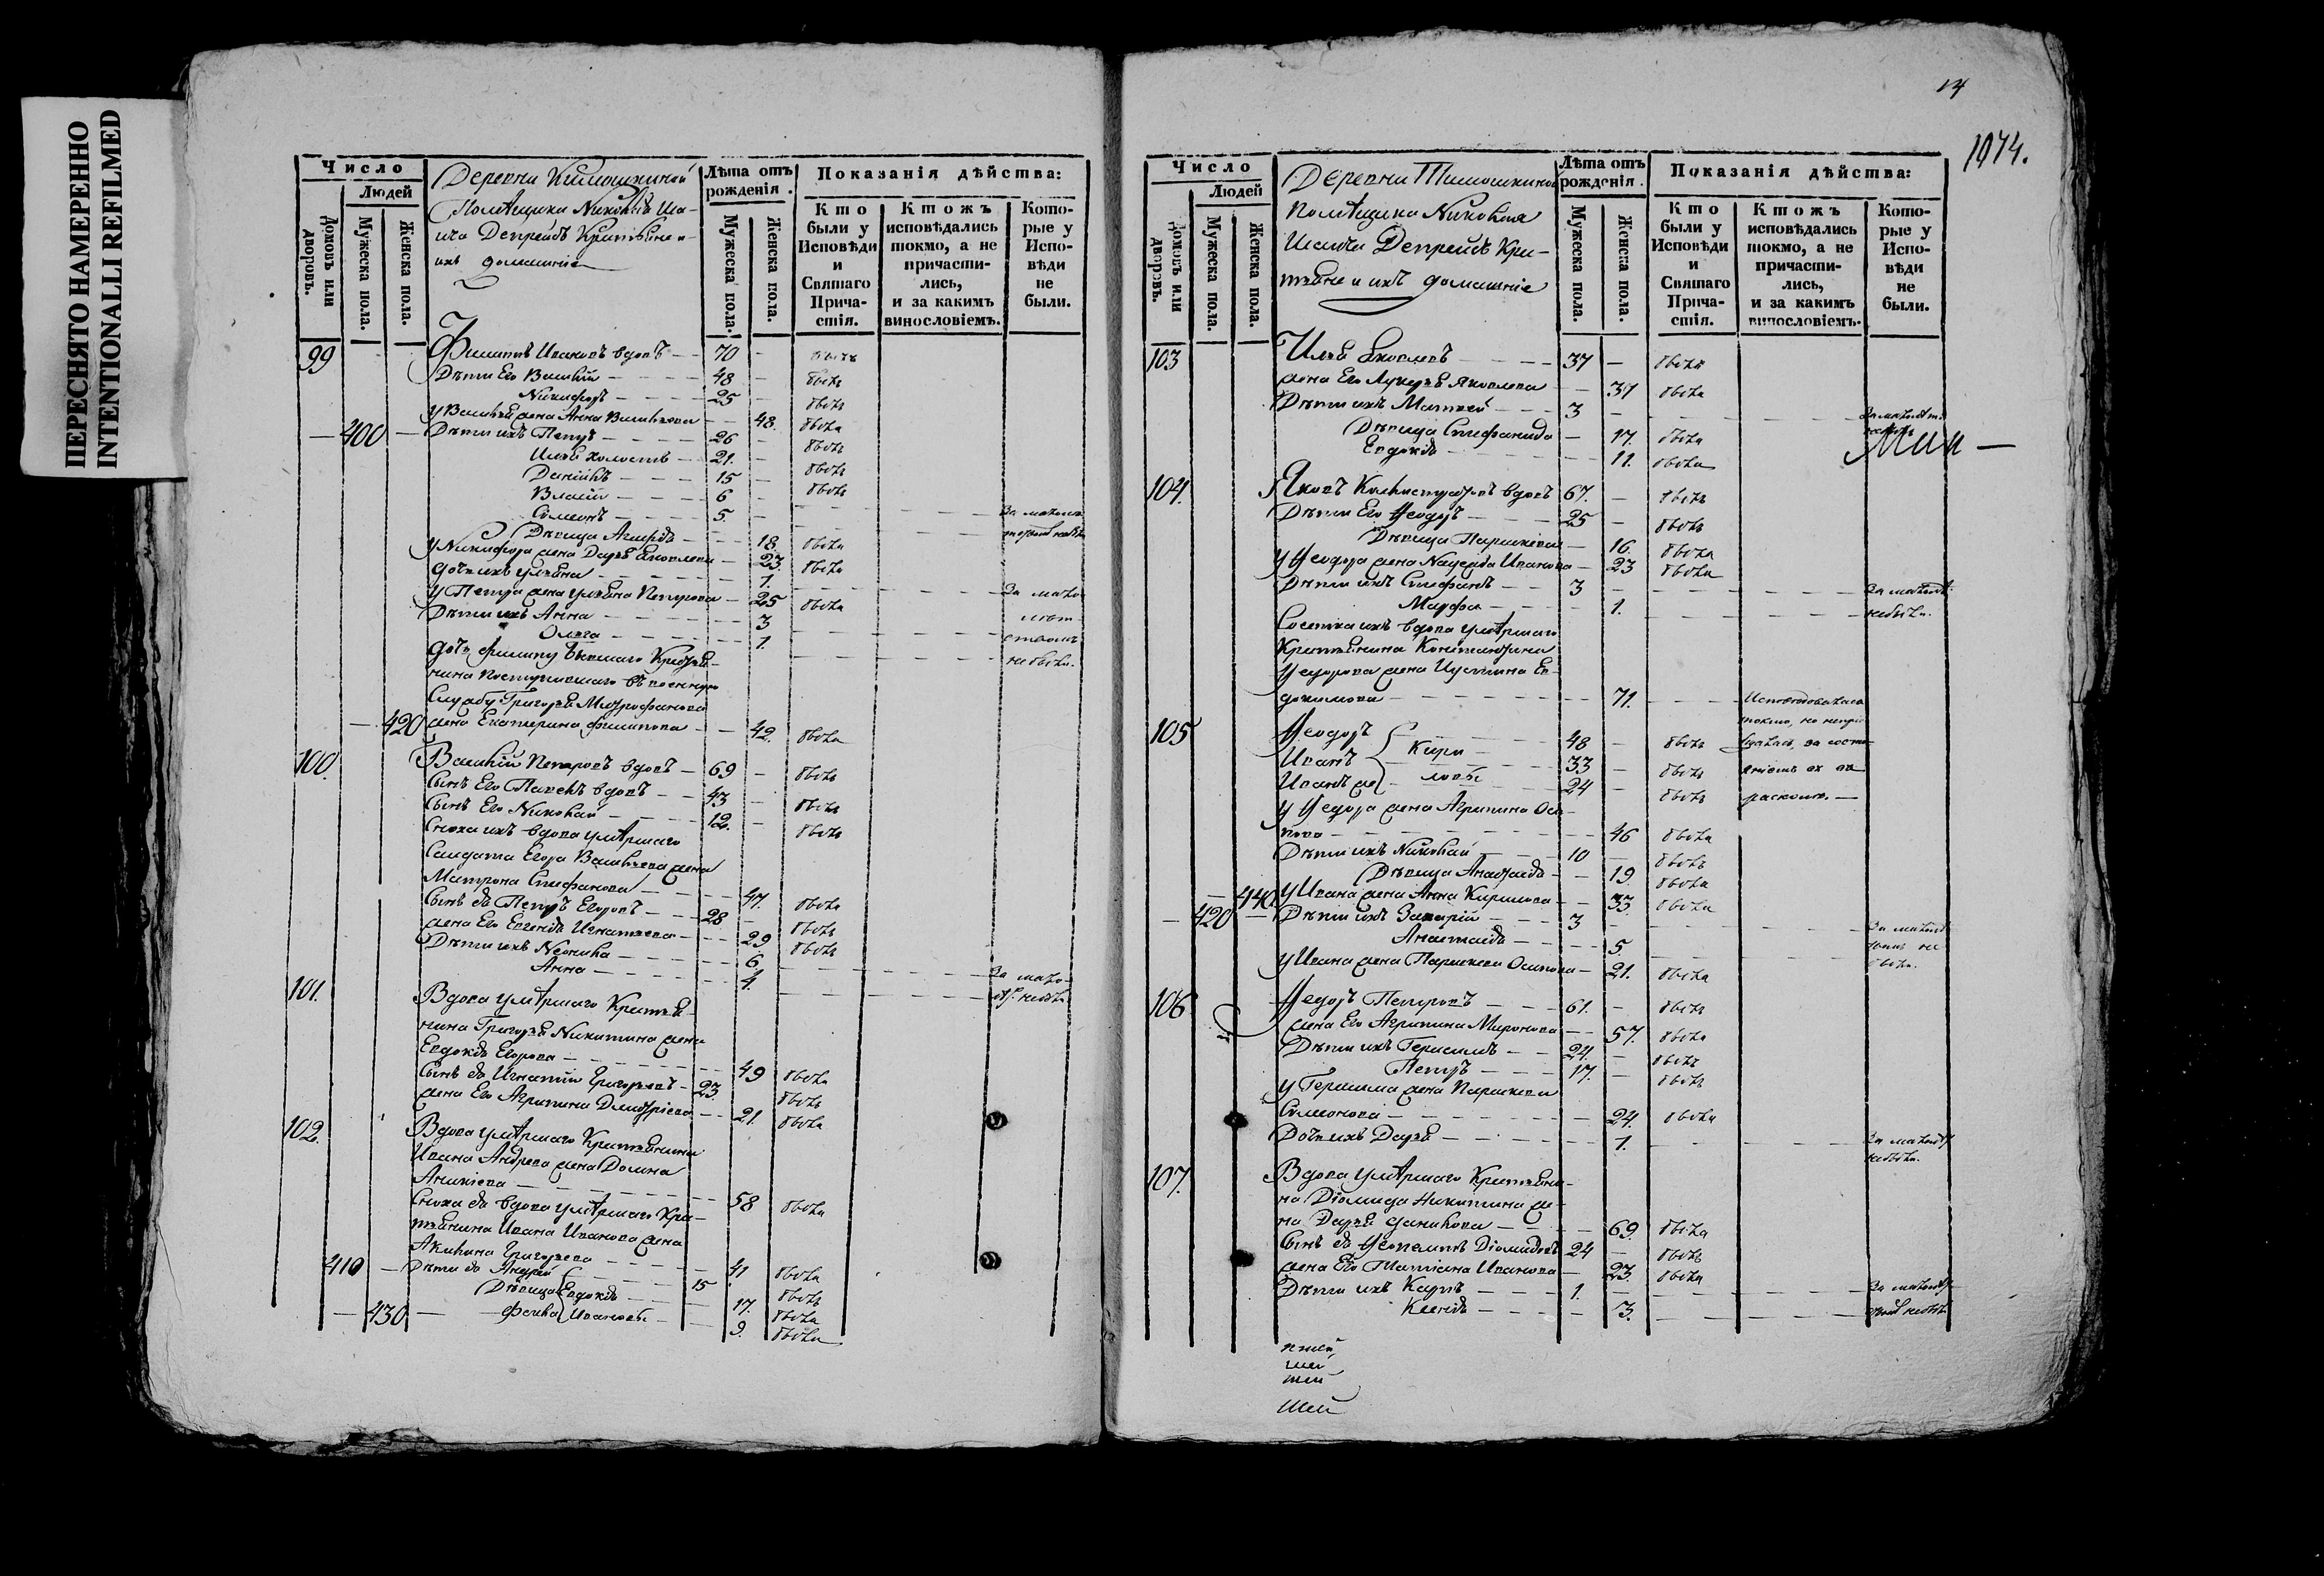 ПЕРЕСНЯТО НАМЕРЕННО
INTENTIONALLI REFILMED
Число
Людей
Домовъ или дворовъ.
Мужеска пола.
Женска пола.
Деревни Тимошкиной
Помѣщика Николая Иса-
ича Депрейдъ Крестьяне и
ихъ домашніе
Лѣта отъ рожденія.
Мужеска пола.
Женска пола.
Показанія дѣйства:
Кто были у Исповѣди и Святаго Причастія.
Ктожъ исповѣдались токмо, а не причастились, и за какимъ винословіемъ.
Которые у Исповѣди не были.
99 Филиппъ Ивановъ вдовъ 70 былъ
Дѣти Его Василій 48 былъ
Никифоръ 25 былъ
у Василья жена Анна Васильева 48 была
400 Дѣти ихъ Петръ 26 былъ
Илья холостъ 21 былъ
Даніилъ 15 былъ
Власій 6
Симеонъ 5 За малол
Дѣвица 18 была
у Никифора жена Дарья Яковлева 23 была
дочь ихъ Ульяна 1
у Петра жена Ульяна Петрова 25 была За мало
Дѣти ихъ Анна 3 лѣт
Олга 1 ствомъ
дочь Филипу бывшаго Крестья- не были.
нина поступившаго въ военную
Службу Григорья Митрофанова
420 жена Екатерина Филипова 42 была
100 Василій Петровъ вдовъ 69 былъ
Сынъ Его Павелъ вдовъ 43 былъ
Сынъ Его Николай 12 былъ
Сноха ихъ вдова умѣршаго
Салдата Егора Васильева жена
Матрона Стефанова 47 была
Сынъ ея Петръ Егоровъ 28 былъ
жена Его Евгенія Игнатьева 29 была
Дѣти ихъ Неонила 6
Анна 4 За мало
101 Вдова умѣршаго Крестья-
нина Григорья Никитина жена
Евдокія Егорова 49 была
Сынъ ея Игнатій Григорьевъ 23 былъ
жена Его Агрипина Дмитріева 21 была
102 Вдова умѣршаго Крестьянина
Ивана Андреева жена Домна
Аникіева 58 была
Сноха ея вдова умѣршаго Кре-
стьянина Ивана Иванова жена
Акилина Григорьева 41 была
410 Дѣти ея Андрей 15 былъ
Дѣвица Евдокія 17 была
430 Фекла Ивановы 9 была
14
1074.
Число
Людей
Домовъ или дворовъ.
Мужеска пола.
Женска пола.
Деревни Тимошкиной
Помѣщика Николая
Исаича Депрейдъ Кре-
стьяне и ихъ домашніе
Лѣта отъ рожденія.
Мужеска пола.
Женска пола.
Показанія дѣйства:
Кто были у Исповѣди и Святаго Причастія.
Ктожъ исповѣдались токмо, а не причастились, и за какимъ винословіемъ.
Которые у Исповѣди не были.
103 Илья Яковлевъ 37 былъ
жена Его Лукерья Яковлева 37 была
Дѣти ихъ Матвей 3
Дѣвица Стефанида 17 была
Евдокія 11 была
104 Яковъ Калистратовъ вдовъ 67 былъ
Дѣти Его Ѳеодоръ 25 былъ
Дѣвица Параскева 16 была
у Ѳеодора жена Надежда Иванова 23 была
Дѣти ихъ Стефанъ 3 За малолѣт.
Марфа 1 не были.
Соседка ихъ вдова умѣршаго
Крестьянина Константина
Ѳедорова жена Иустина Ев-
докимова 71 Исповѣдовалась
105 Ѳеодоръ Кири- 48 былъ токмо, но непри
Иванъ ловы 33 былъ
Иванъ же 24 былъ расколѣ.
у Ѳедора жена Агрипина Оси-
пова 46 была
Дѣти ихъ Николай 10 былъ
Дѣвица Анастасія 19 была
440 у Ивана жена Анна Кирилова 33 была
420 Дѣти ихъ Захарій 3
Анастасія 5
у Ивана жена Параскева Осипова 21 была
106 Ѳедоръ Петровъ 61 былъ
жена Его Агрипина Миронова 57 была
Дѣти ихъ Герасимъ 24 былъ
Петръ 17 былъ
у Герасима жена Параскева
Симонова 24 была
Дочь ихъ Дарья 1 не были.
107 Вдова умѣршаго Крестьяни-
на Діомида Никитина же-
на Дарья Данилова 69 была
Сынъ ея Ѳеопемптъ Діомидовъ 24 былъ
жена Его Татіана Иванова 23 была
Дѣти ихъ Карпъ 1
Ксенія 3
шей